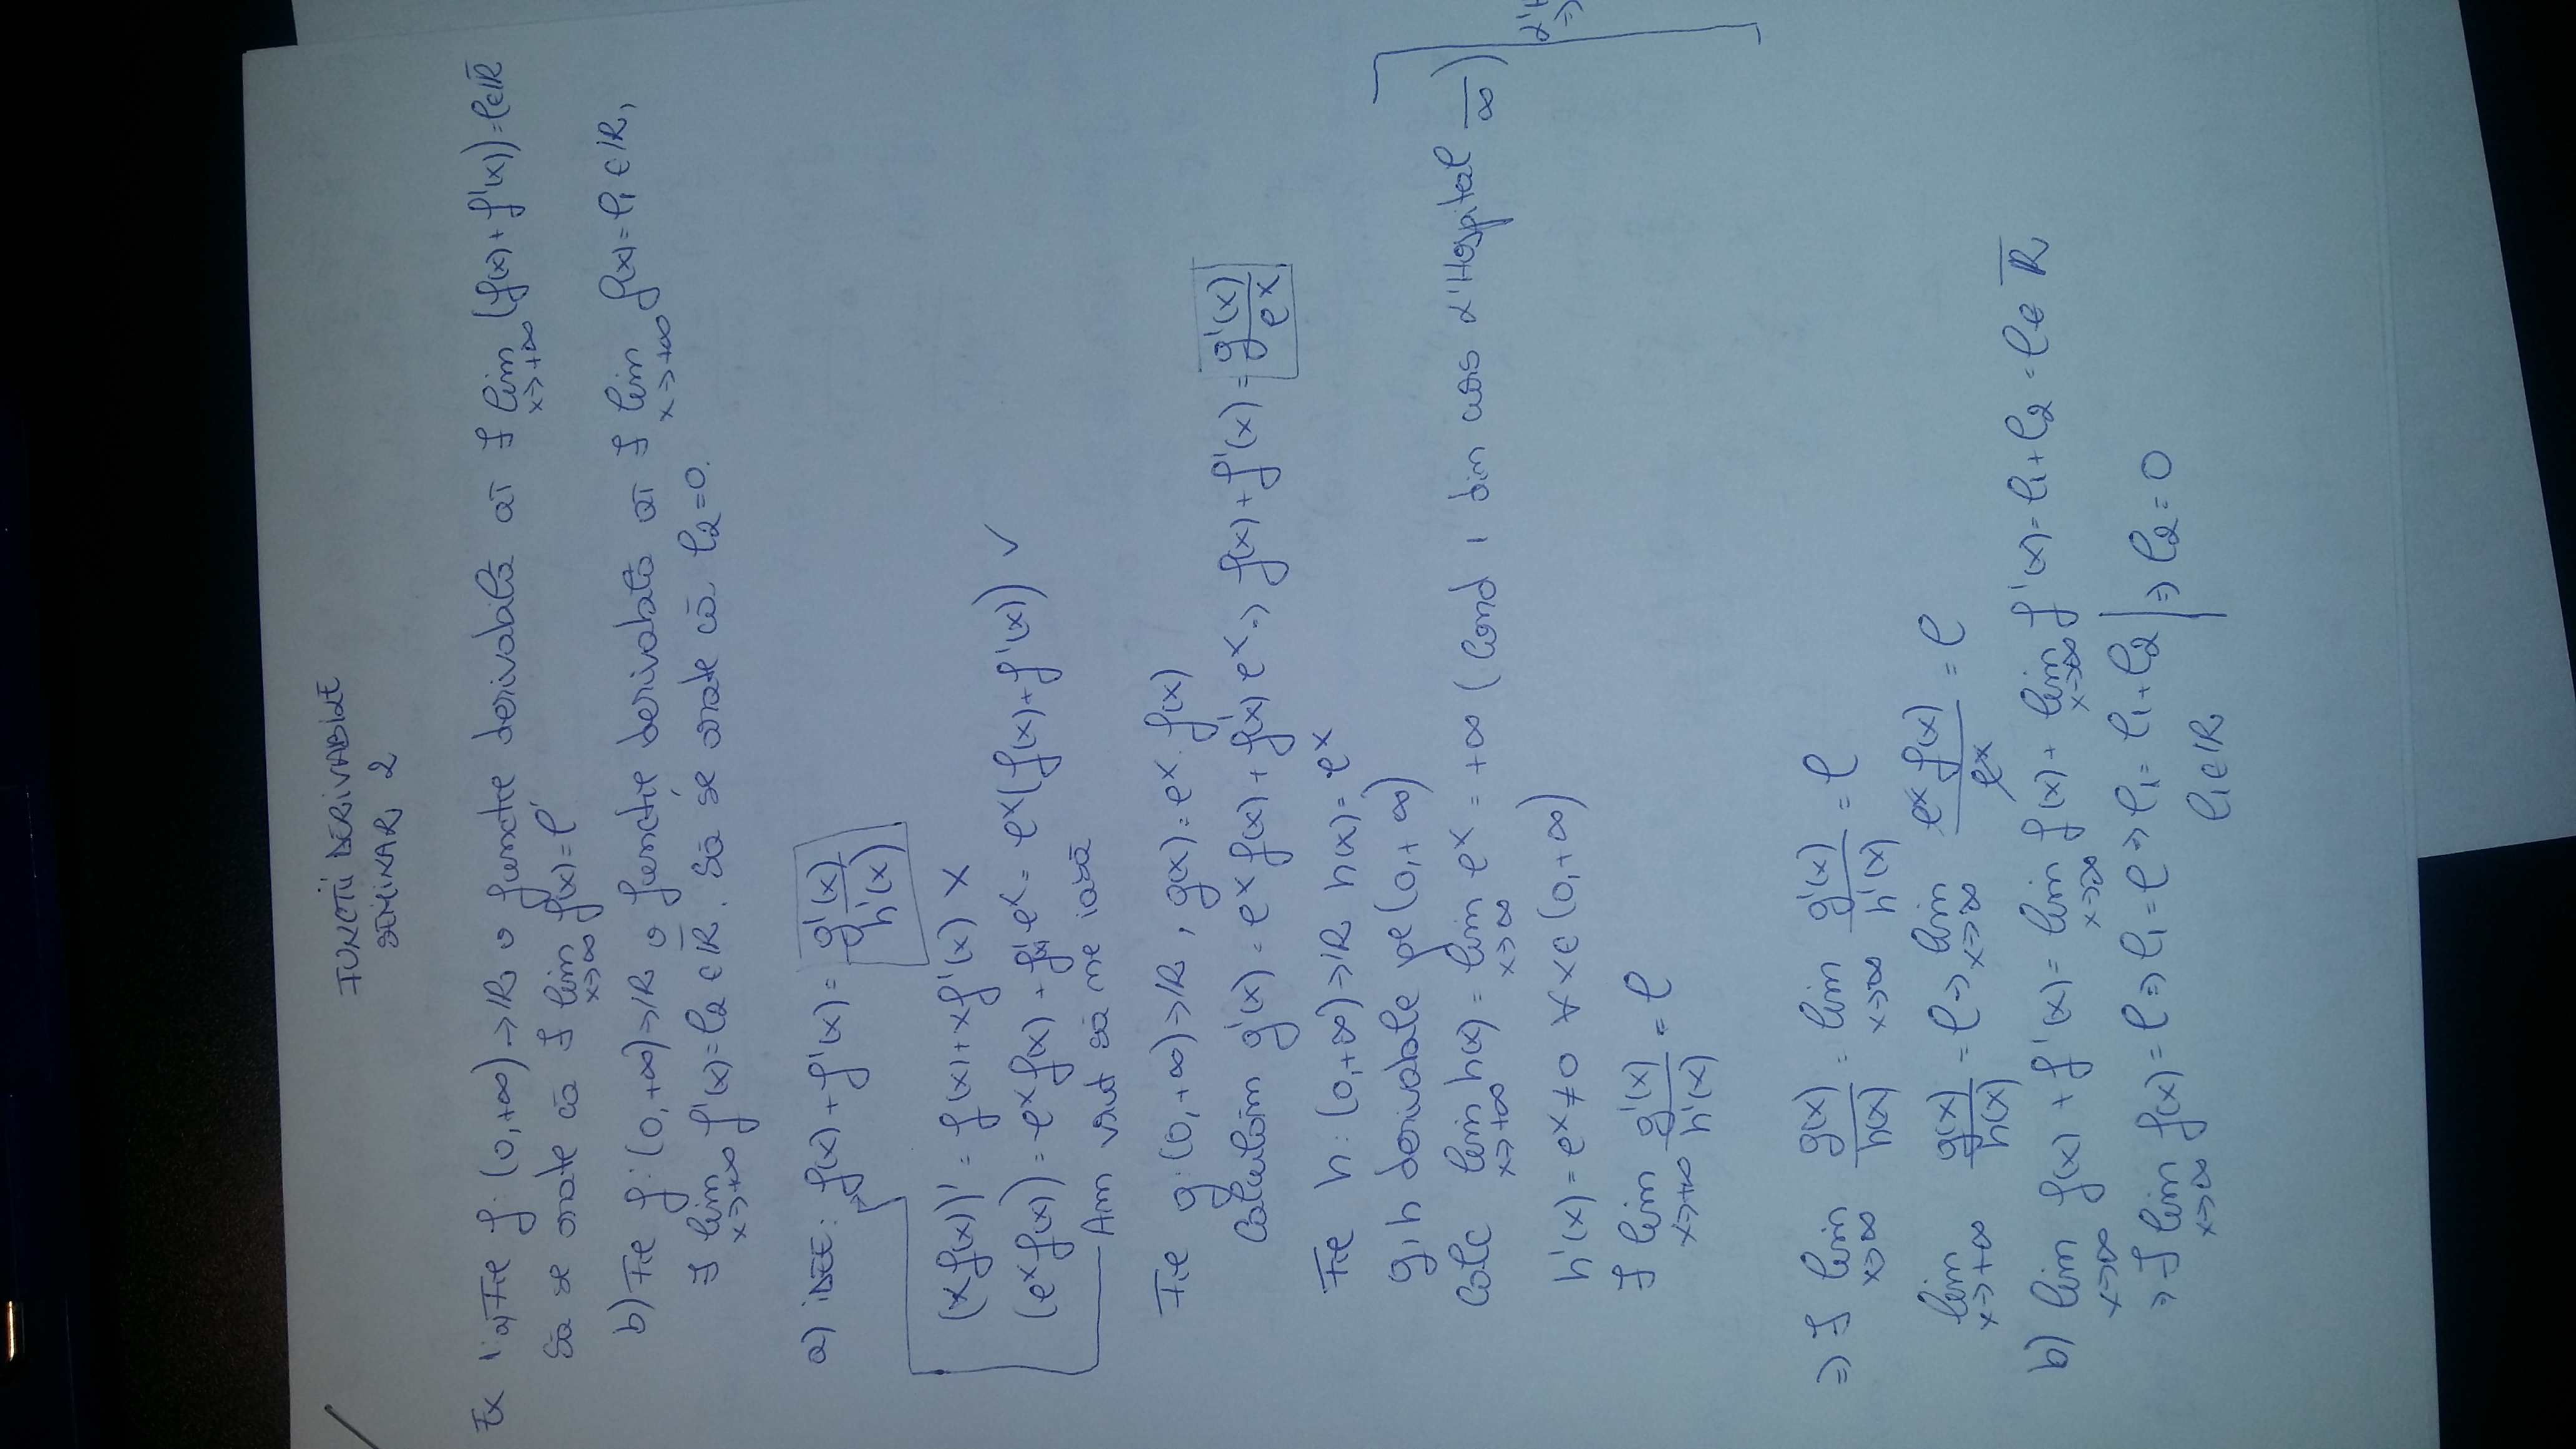 FUNCTII DERIVABILE
SEMINAR 2
Ex 1: a) Fie f: (0,+∞)→IR o funcție derivabilă aî ∃ lim x→+∞ (f(x) + f'(x)) = l∈IR̄
Să se arate că ∃ lim x→∞ f(x) = l
b) Fie f: (0,+∞)→IR o funcție derivabilă aî ∃ lim x→+∞ f(x) = l₁ ∈ IR,
∃ lim x→+∞ f'(x) = l₂ ∈ IR̄. Să se arate că l₂ = 0.
a) iDEE: f(x) + f'(x) = g'(x)/h'(x)
(x f(x))' = f(x) + x f'(x) X
(eˣ f(x)) = eˣ f(x) + f'(x) eˣ = eˣ (f(x) + f'(x)) ✓
Am vrut să ne iasă
Fie g: (0,+∞)→IR, g(x) = eˣ · f(x)
Calculăm g'(x) = eˣ f(x) + f'(x) eˣ ⇒ f(x) + f'(x) = g'(x)/eˣ
Fie h: (0,+∞)→IR h(x) = eˣ
g, h derivabile pe (0,+∞)
Calc lim x→+∞ h(x) = lim x→∞ eˣ = +∞ (Cond 1 din curs L'Hospital —/∞)
h'(x) = eˣ ≠ 0 ∀ x∈ (0,+∞)
∃ lim x→+∞ g'(x)/h'(x) = l
⇒ ∃ lim x→∞ g(x)/h(x) = lim x→∞ g'(x)/h'(x) = l
lim x→+∞ g(x)/h(x) = l ⇒ lim x→∞ eˣ f(x)/eˣ = l
b) lim x→∞ f(x) + f'(x) = lim x→∞ f(x) + lim x→∞ f'(x) = l₁ + l₂ = l ∈ IR̄
⇒ ∃ lim x→∞ f(x) = l ⇒ l₁ = l ⇒ l₁ = l₁ + l₂ | ⇒ l₂ = 0
l₁ ∈ IR